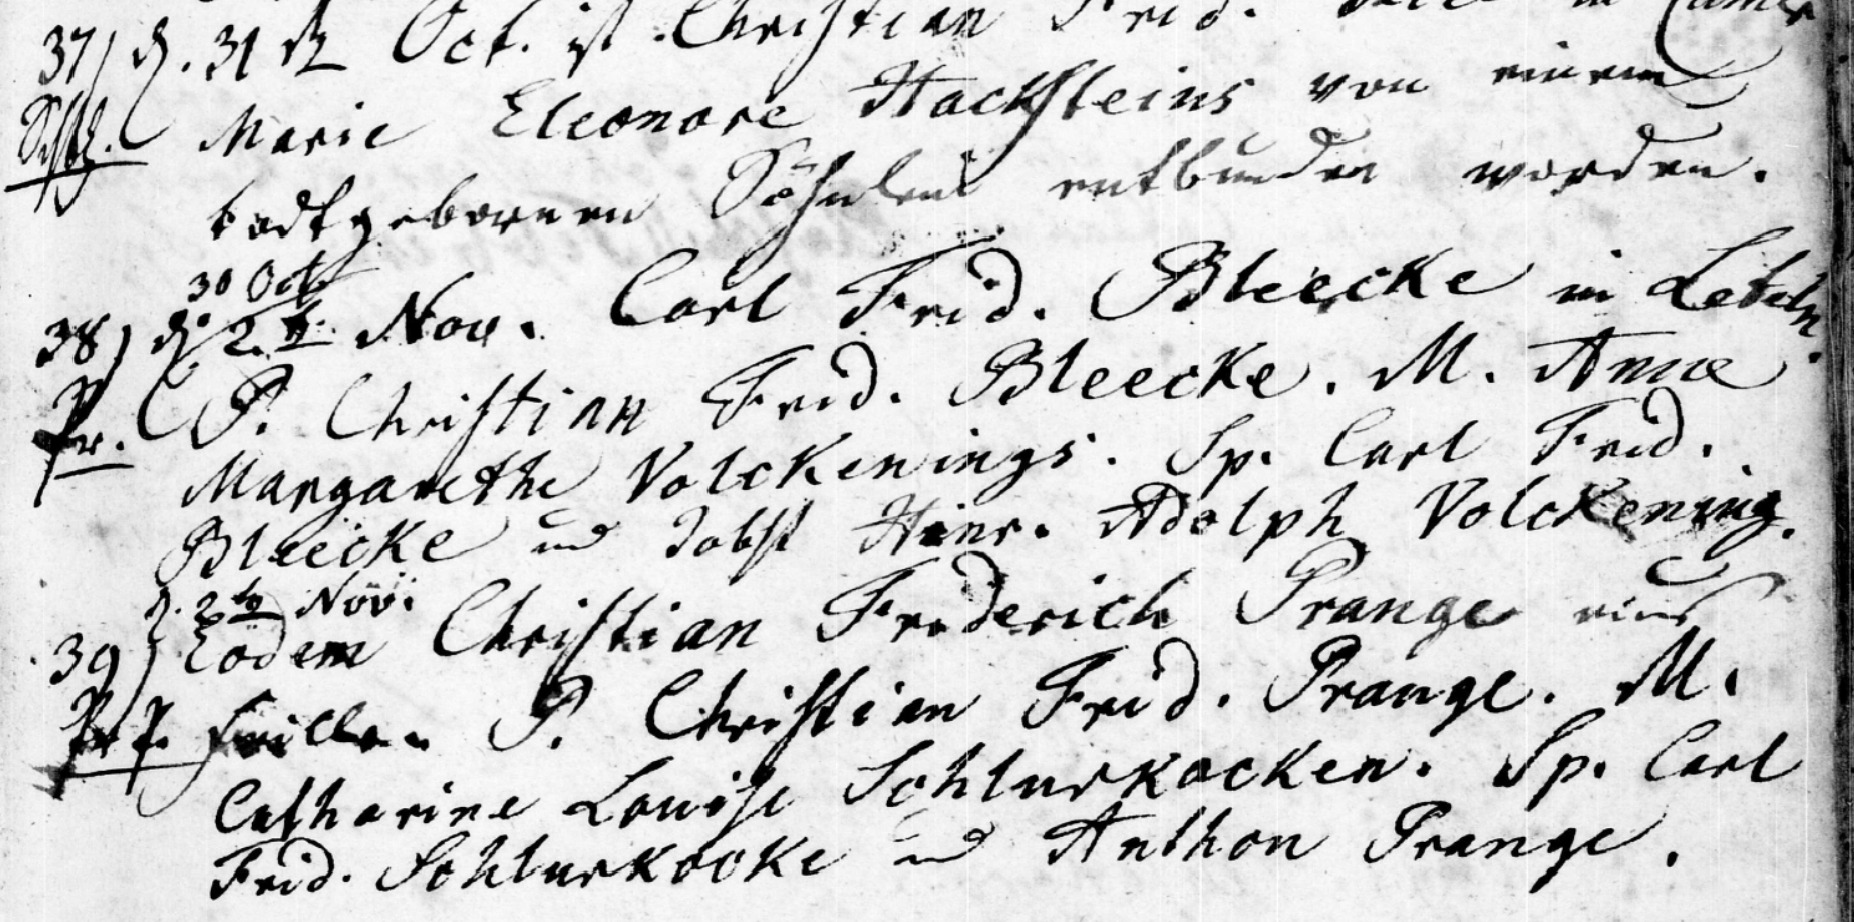 37) d. 31 t Oct. ist Christian Frid. in
Marie Eleonore Hacksteins von einem
todtgebornen Söhnlein entbunden worden.
30 Oct
38) d. 2. t. Nov. Carl Frid. Bleecke in Leteln.
Pr. P. Christian Frid. Bleecke. M. Anne
Margarethe Volckenings. Sp. Carl Frid.
Bleecke und Jobst Hinr. Adolph Volckening.
d. 2 t Nov.
39) Eodem Christian Frederich Prange aus
Frille. P. Christian Frid. Prange. M.
Catharine Louise Schlurkocken. Sp. Carl
Frid. Schlurkocke und Anthon Prange.